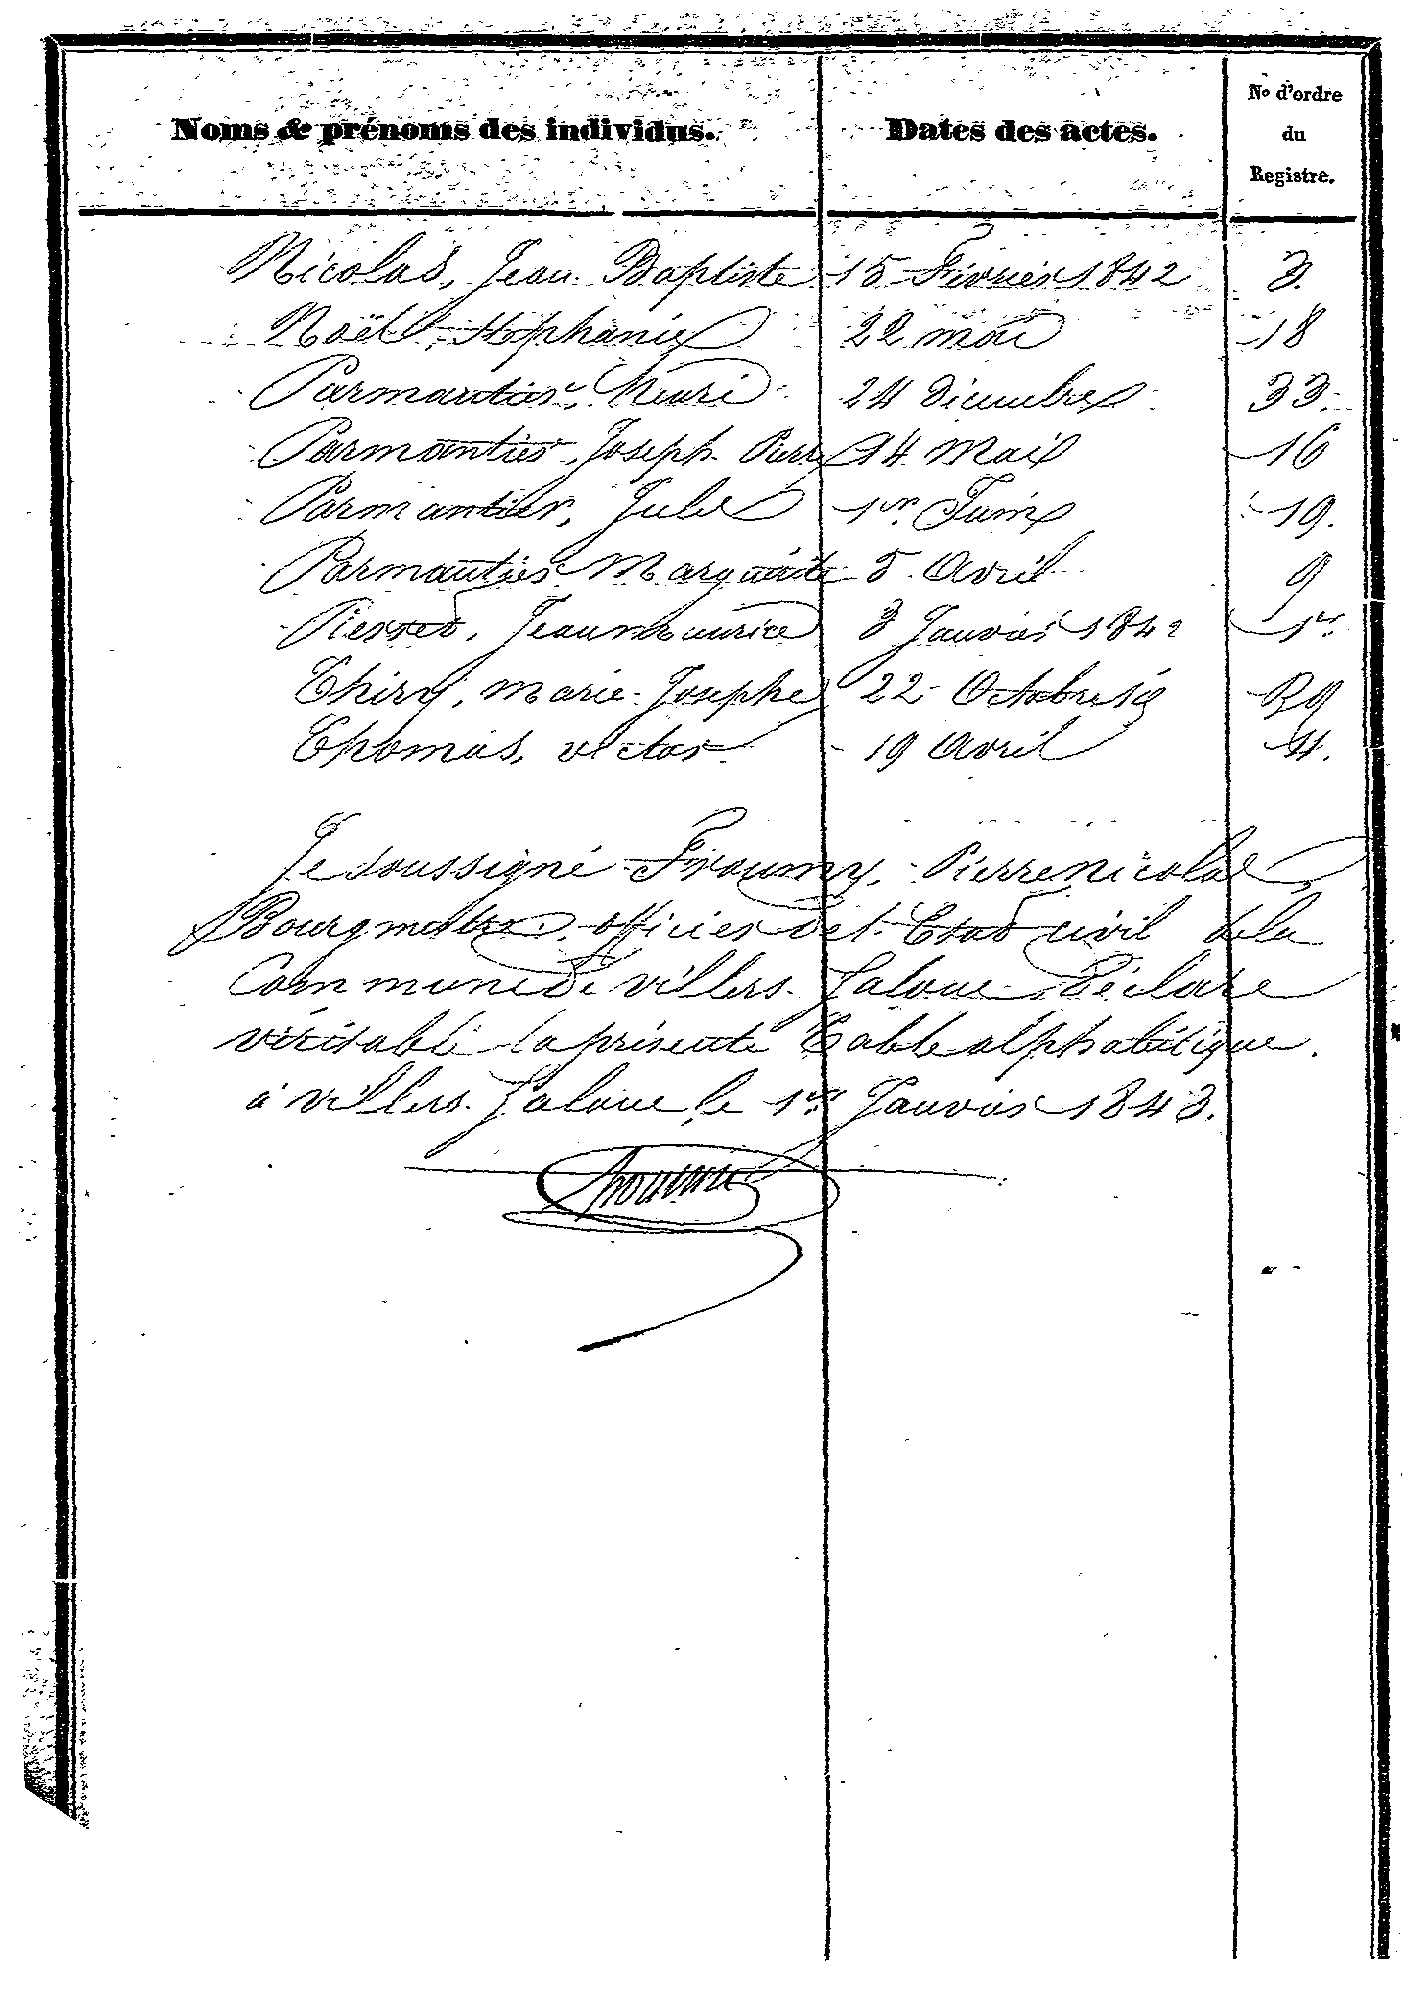 Noms & prénoms des individus. Dates des actes. No d'ordre du Registre.
Nicolas, Jean-Baptiste 15 Février 1842 3.
Noël, Stéphanie 22 mai 18
Parmantier, Henri 24 Décembre 33.
Parmantier, Joseph Pierre 14 Mai 16
Parmantier, Jules 1er Juin 19.
Parmantier Marguerite 5 Avril 9
Pierret, Jean maurice 3 Janvier 1842 1er
Thiry, marie-Josephe 22 Octobre 29
Thomas, victor 19 Avril
Je soussigné Froumy, Pierre Nicolas
Bourgmestre, officier de l'Etat civil de la
Commune de villers-
véritable la présente Table alphabétique.
à villers- le 1er Janvier 1843.